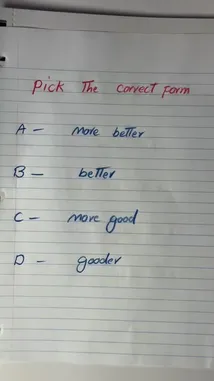 Pick The correct form
A - more better
B - better
C - more good
D - gooder